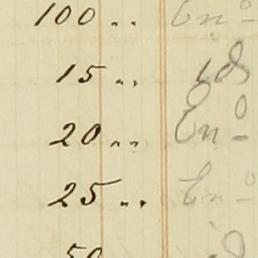 100 „ Eno
15 „ id
20 „ Eno
25 „ Eno
50 id